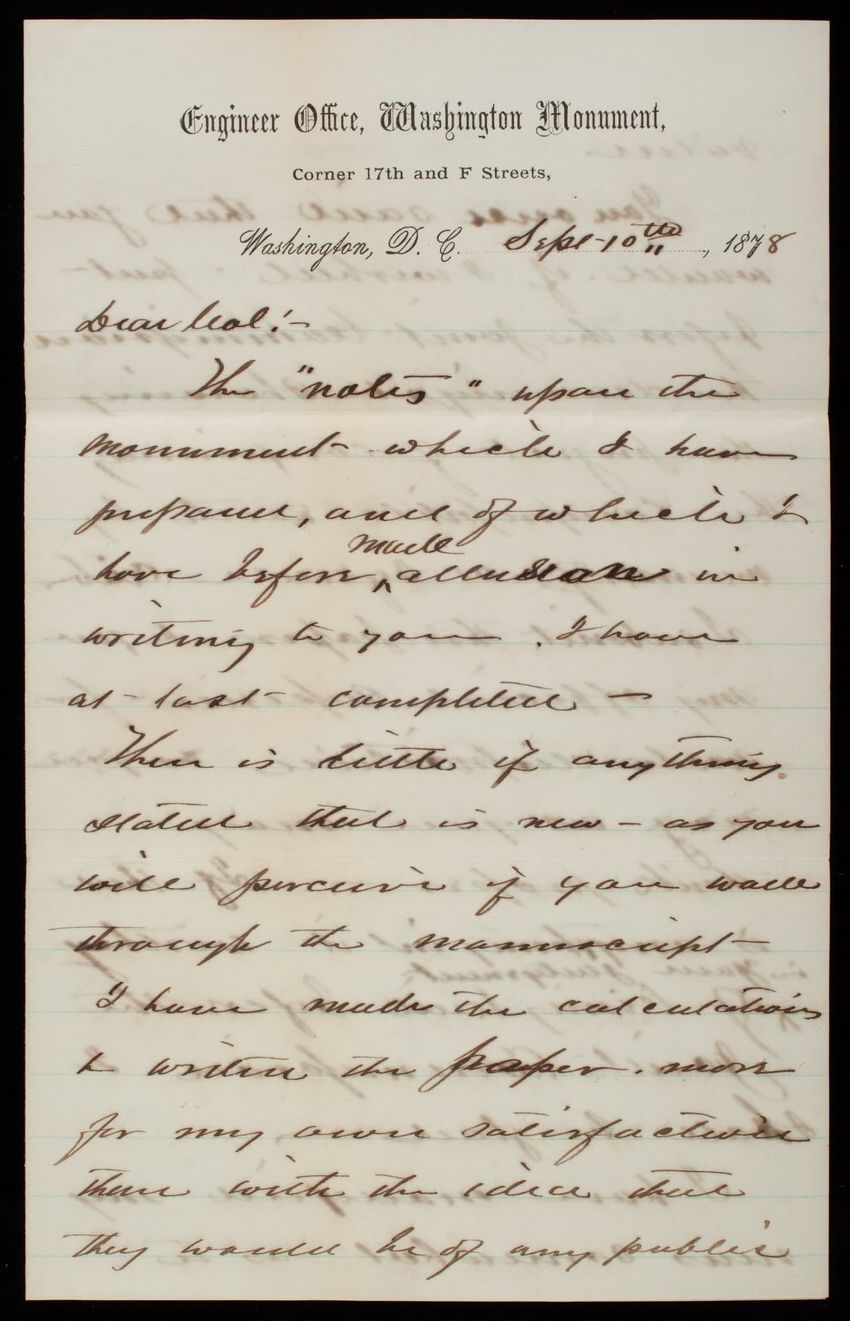 Engineer Office, Washington Monument,
Corner 17th and F Streets,
Washington, D. C. Sept 10th, 1878
Dear Col!-
The "notes" upon the
monument which I have
prepared, and of which I
made
have before ^ allusion in
writing to you. I have
at last completed -
There is little if anything
stated that is new - as you
will perceive if you wade
through the manuscript -
I have made the calculations
& written the paper. more
for my own satisfaction
than with the idea that
they would be of any public